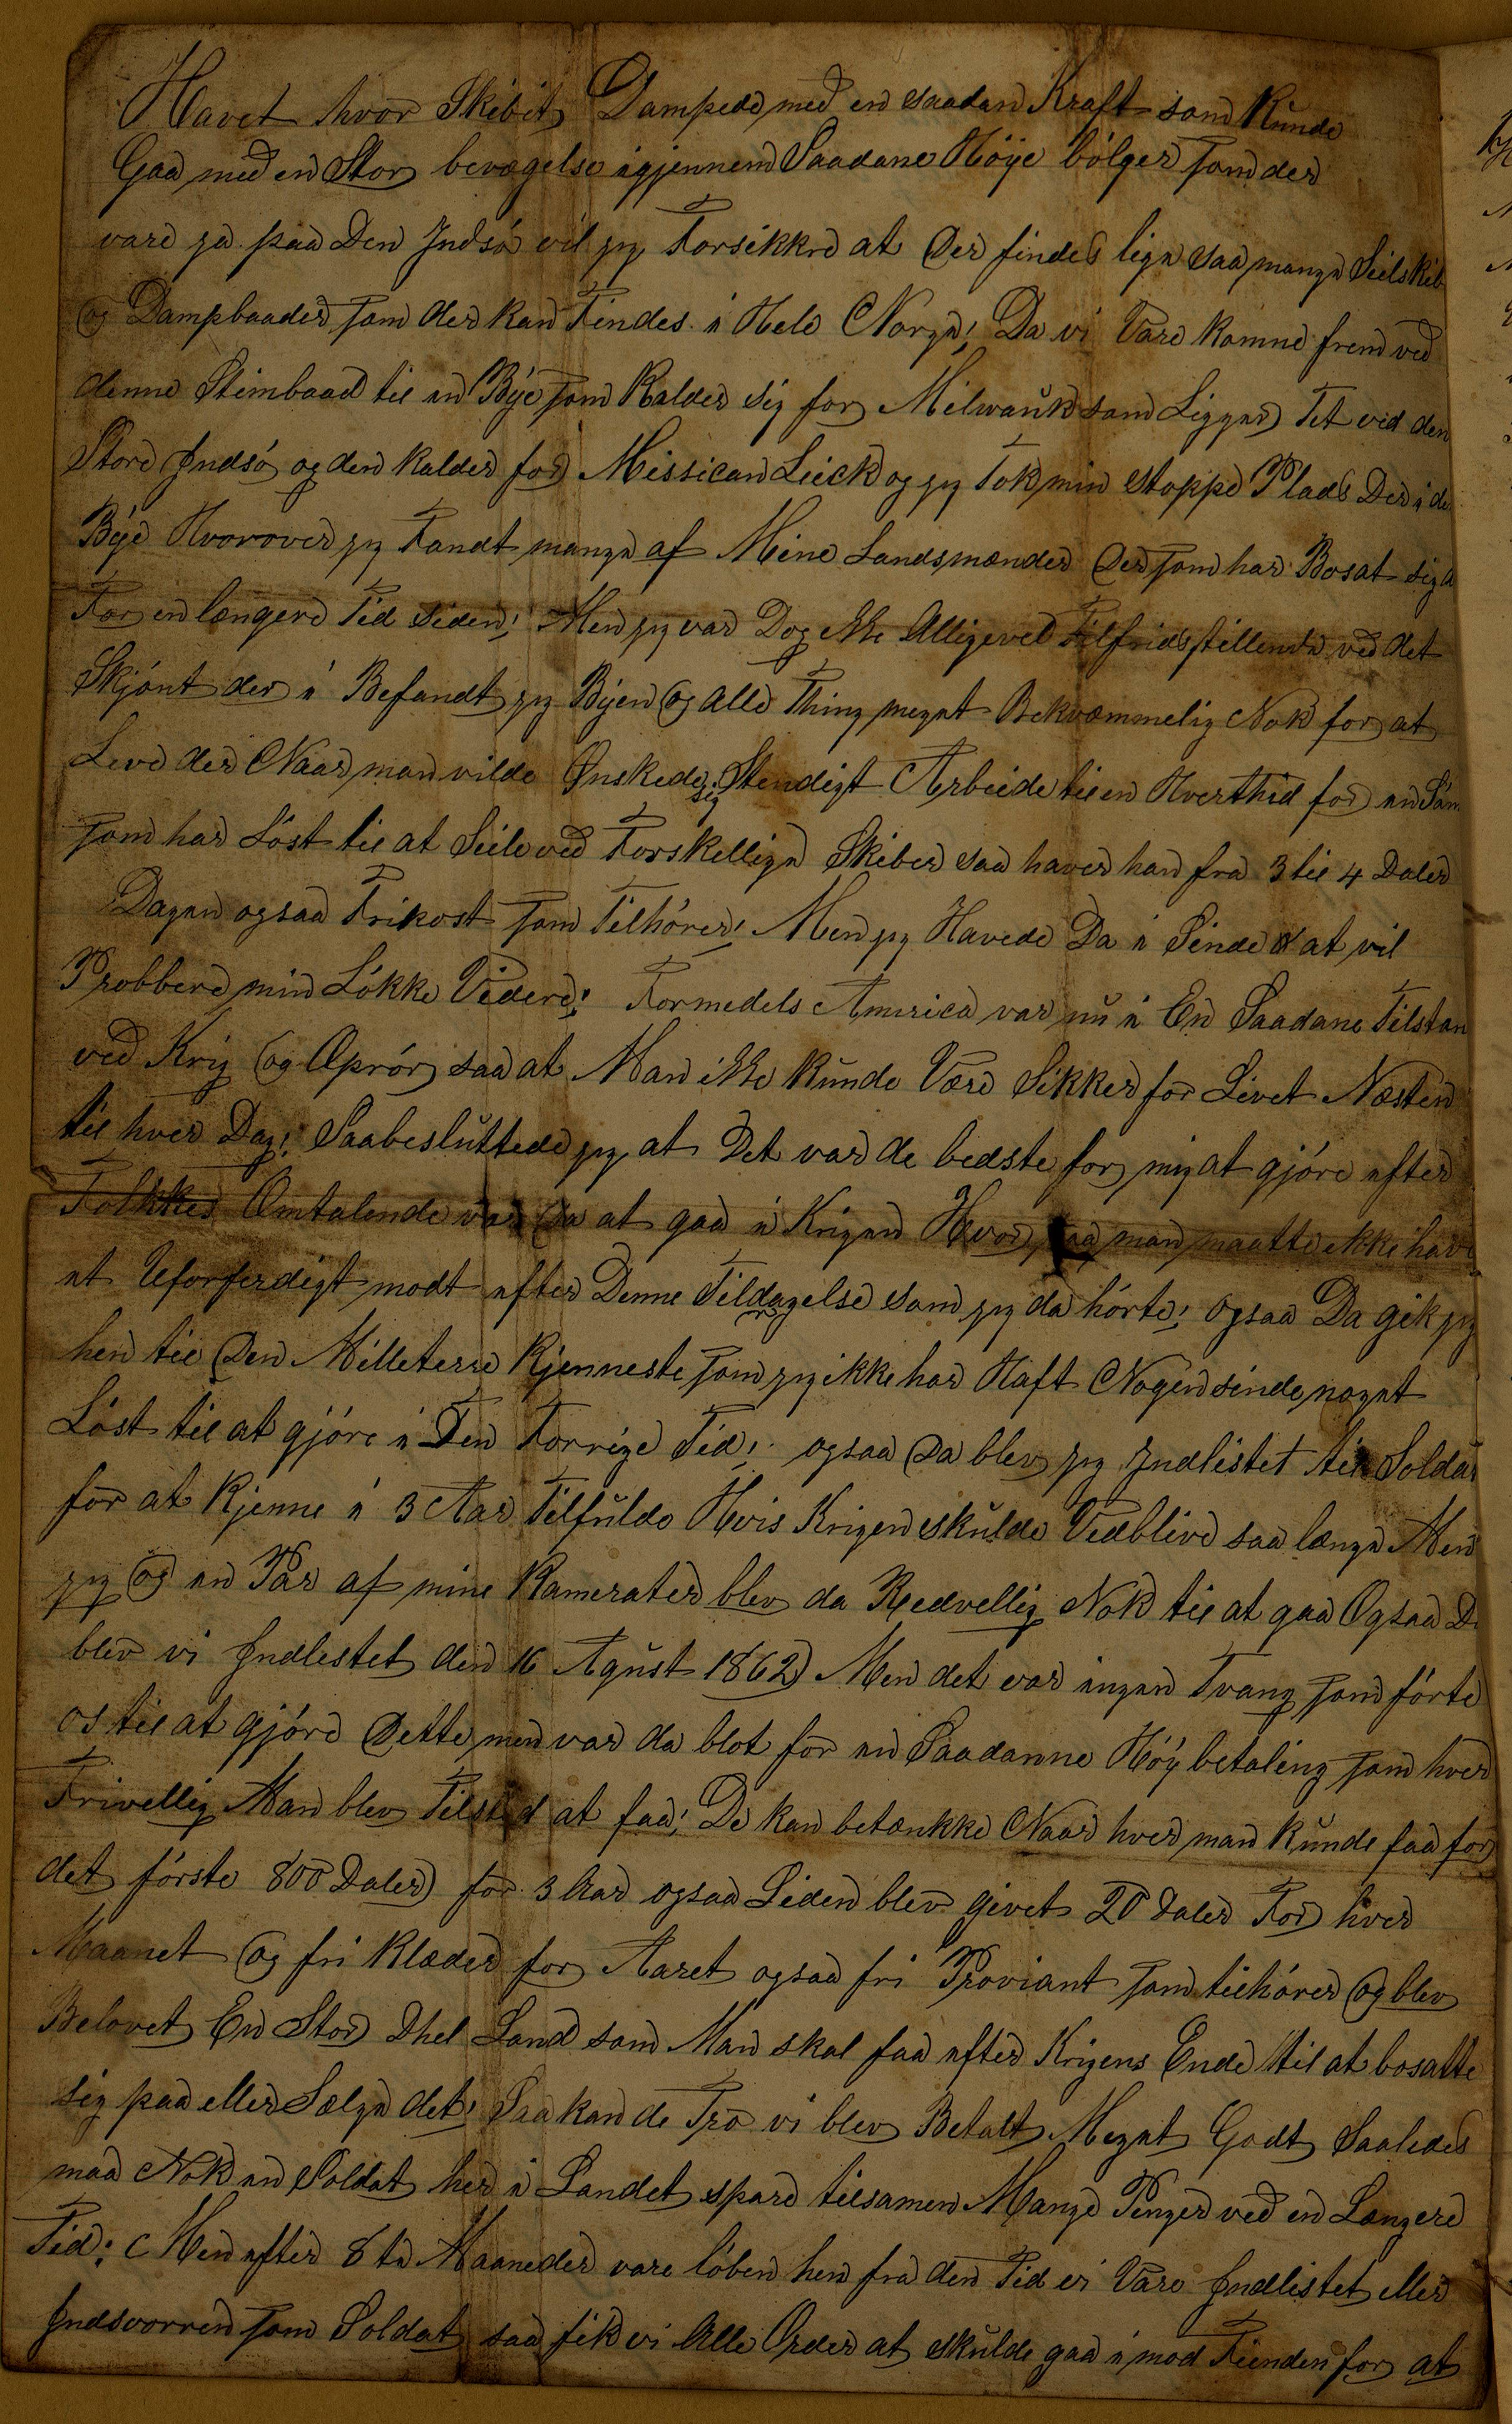 Havet hvor Skibet Dampede med en saadan Kraft som Kunde
Gaa med en Stor bevægelse igjennem Saadane Höye bölger som der
vare ja paa Den Indsö vil jeg Forsikkre at Der findes lige saa mange Seilskib
og Dampbaader som der kan Findes i Hele Norge! Da vi Vare komne frem ved
denne Stimbaad til en Bye som Kalder sig for Milwauk som Ligger Tet ved den
Store Indsö og den kalder for Missican Leick og jeg Tok min stoppe Plads Der i de
Bye Hvorover jeg Fandt mange af Mine Landsmænder Der som har Bosat sig
For en længere Tid siden! Men jeg var Dog ikke Alligevel Tilfridsstillende ved det
Skjönt der i Befandt jeg Byen og alle Thing meget Bekvæmmelig Nok for at
Leve der Naar man vilde Ønskede sig Stendigt Arbeide til en Hverthid for en Söm
som har Löst til at Seile ved Forskellige Skiber saa haver han fra 3 til 4 Daler
Dagen ogsaa Frikost som Tilhörer! Men jeg Havede Da i Sinde at vil
Probbere min Lökke Videre! Formedels America var nu i En Saadane Tilstan
ved Krig og Oprör saa at Man ikke Kunde Være Sikker for Livet Næsten
til hver Dag! Saa besluttede jeg at Det var de bedste for mig at gjöre efter
Folkkes Omtalende var da at gaa i Krigen Hvor saa man maatte ikke have
et Uforferdigt modt efter Denne Tildragelse som jeg da hörte! ogsaa Da gik jeg
hen til Den Milleterre Kjenneste som jeg ikke har Haft Nogensinde noget
Löst til at gjöre i Den Forrige Tid! ogsaa Da blev jeg Indlistet til Soldat
for at Kjenne i 3 Aar Tilfulde Hvis Krigen skulde Vedblive saa længe Men
jeg og en Par af mine Kamerater blev da Redvellig Nok til at gaa Ogsaa Da
blev vi Indlestet den 16 Agust 1862 Men det var ingen Tvang som förte
os til at gjöre Dette men var da blot for en Saadanne Höy betaling som hver
Frivellig Man blev Tilsted at faa! De kan betænkke Naar hver man Kunde faa for
det förste 800 Daler for 3 Aar ogsaa Siden blev givet 20 Daler For hver
Maanet og fri Klæder for Aaret ogsaa fri Proviant som tilhörer og blev
Belovet En Stor Dhel Land som Man skal faa efter Krigens Ende til at bosatte
sig paa eller Sælge det! Saa kan de Tro vi blev Betalt Meget Godt Saaledes
maa Nok en Soldat her i Landet spare tilsamen Mange Penger ved en Længere
Tid! Men efter 8 te Maaneder vare löben hen fra den Tid vi Vare Indlistet eller
Indsvorren som Soldat saa fik vi Alle Order at skulde gaa imod Fienden for at